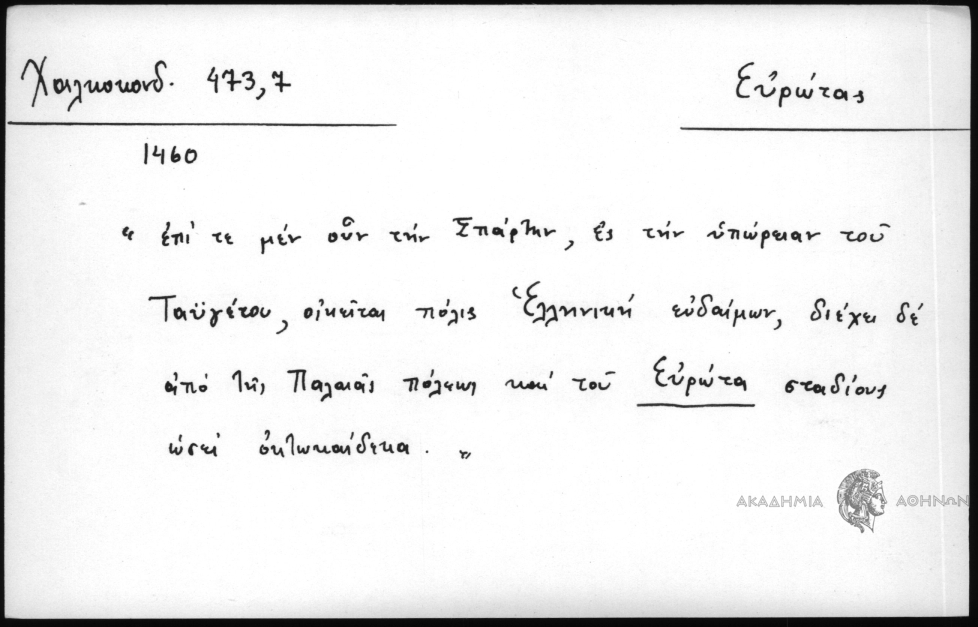 Χαλκοκονδ. 473,7
Εὐρώτας
1460
" ἐπί τε μέν οὖν τήν Σπάρτην, ἐς τήν ὑπώρειαν τοῦ
Ταϋγέτου, οἰκεῖται πόλις Ἑλληνική εὐδαίμων, διέχει δέ
ἀπό τῆς Παλαιᾶς πόλεως καί τοῦ Εὐρώτα σταδίους
ὡσεί ὀκτωκαίδεκα. "
ΑΚΑΔΗΜΙΑ ΑΘΗΝΩΝ